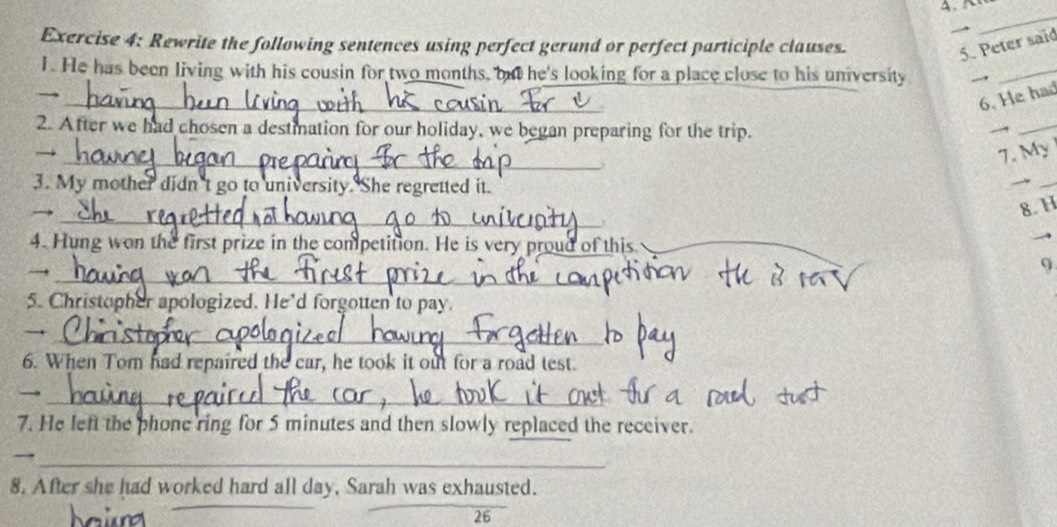 4. A
Exercise 4: Rewrite the following sentences using perfect gerund or perfect participle clauses.
1. He has been living with his cousin for two months, he's looking for a place close to his university
→ having been living with his cousin for
2. After we had chosen a destination for our holiday, we began preparing for the trip.
→ having began preparing for the trip
3. My mother didn't go to university. She regretted it.
→ She regretted not having go to university
4. Hung won the first prize in the competition. He is very proud of this.
→ having won the first prize in the competition He is
5. Christopher apologized. He'd forgotten to pay.
→ Christopher apologized having forgotten to pay
6. When Tom had repaired the car, he took it out for a road test.
→ having repaired the car, he took it out for a road test
7. He left the phone ring for 5 minutes and then slowly replaced the receiver.
→
8. After she had worked hard all day, Sarah was exhausted.
having
26
→
5. Peter said
→
6. He had
→
7. My
→
8. H
→
9